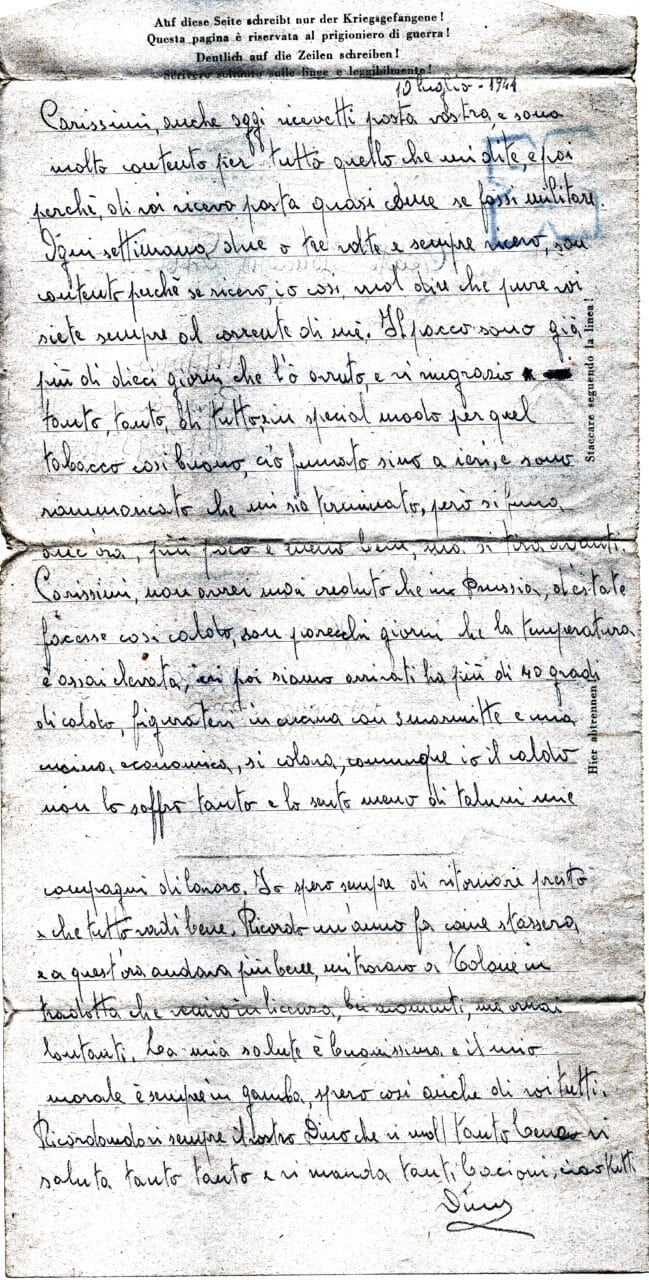 Auf diese Seite schreibt nur der Kriegsgefangene!
Questa pagina è riservata al prigioniero di guerra!
Deutlich auf die Zeilen schreiben!
Scrivere soltanto sulle linee e leggibilmente!
10 Luglio - 1944
Carissimi, anche oggi ricevetti posta vostra, e sono
molto contento per tutto quello che mi dite, e poi
perchè, di voi ricevo posta quasi come se fossi militare.
Ogni settimana, due o tre volte e sempre ricevo, son
contento perchè se ricevo, io così, vuol dire che pure voi
siete sempre al corrente di me. Il pacco sono già
più di dieci giorni che l'ò avuto, e vi ringrazio
tanto, tanto, di tutto, in special modo per quel
tobacco così buono, ciò fumato sino a ieri, e sono
rammaricato che mi sia terminato, però si fuma,
anc'ora, più poco e meno bene, ma si tira avanti.
Carissimi, non avrei mai creduto che in Prussia, d'estate
facesse così caldo, son parecchi giorni che la temperatura
è assai elevata, poi siamo arrivati ha più di 40 gradi
di caldo, figuratevi in cucina con 3 marmitte e una
cucina, economica, si cola, comunque io il caldo
non lo soffro tanto e lo sento meno di taluni mie
compagni di lavoro. Io spero sempre di ritornare presto
e che tutto vadi bene. Ricordo un'anno fa come stassera
e a quest'ora andava più bene, mi trovavo a in
tradotta che venivo in licenza, bei momenti, ma ormai
lontanti. La mia salute è buonissima e il mio
morale è sempre in gamba, spero così anche di voi tutti.
Ricordandovi sempre il vostro Dino che vi vuol tanto bene vi
saluta tanto tanto e vi manda tanti bacioni, ciao tutti
Dino
Staccare seguendo la linea!
Hier abtrennen